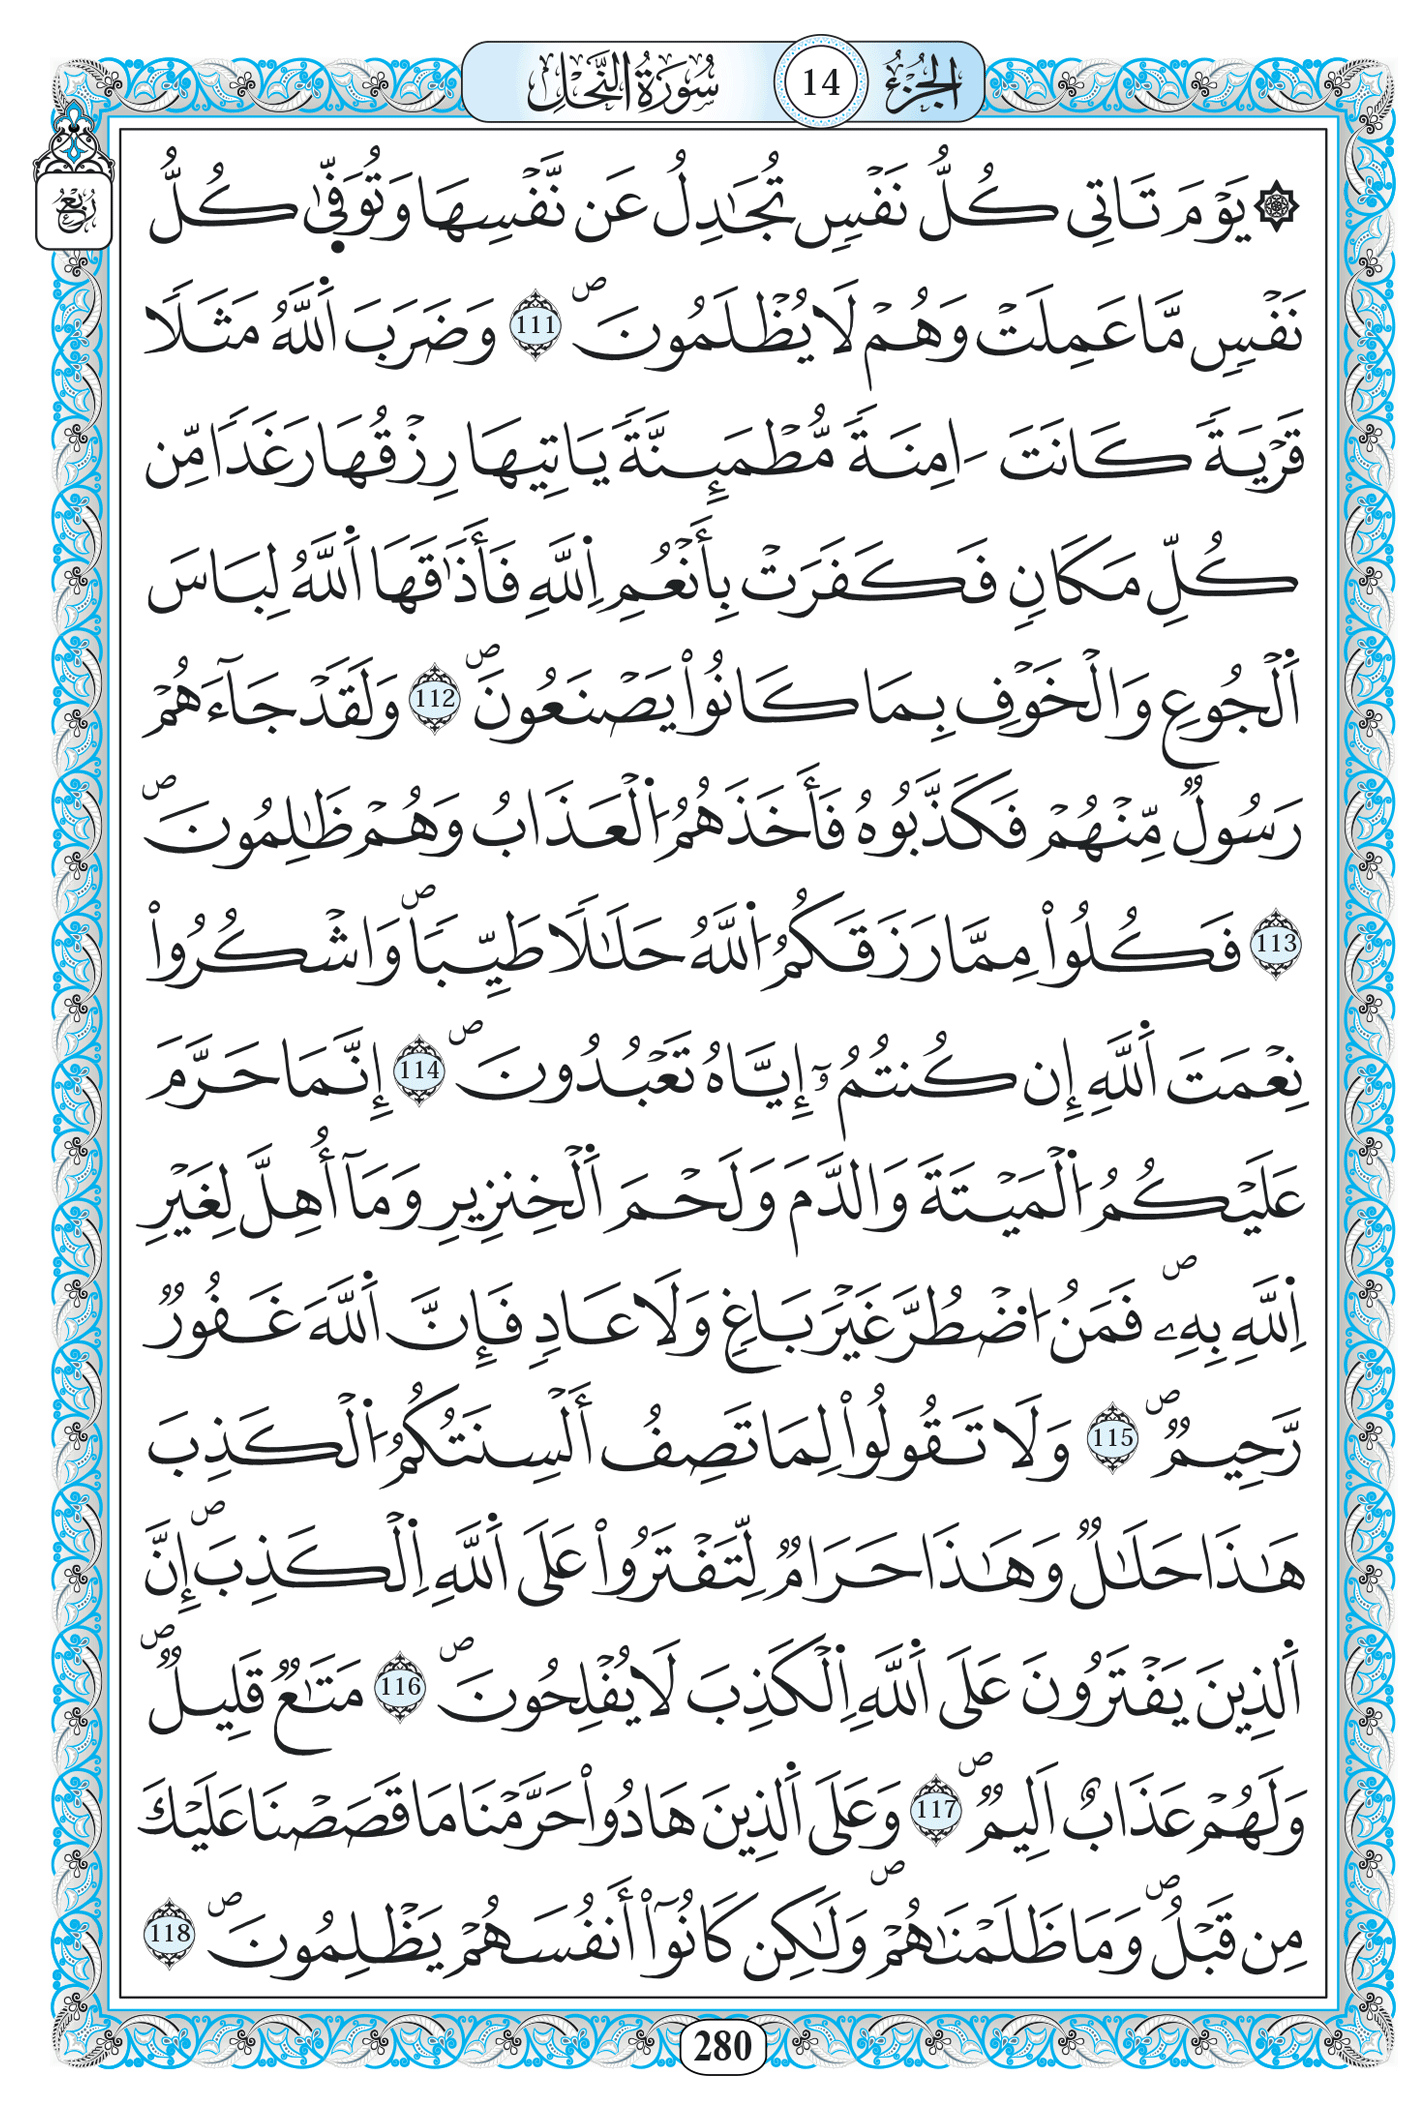 الجُزْءُ 14 سُورَةُ النَّحْلِ
رُبُعْ
۞ يَوْمَ تَاتِي كُلُّ نَفْسٖ تُجَٰدِلُ عَن نَّفْسِهَا وَتُوَفّ۪ىٰ كُلُّ
نَفْسٖ مَّا عَمِلَتْ وَهُمْ لَا يُظْلَمُونَۖ 111 وَضَرَبَ اَ۬للَّهُ مَثَلاٗ
قَرْيَةٗ كَانَتَ اٰمِنَةٗ مُّطْمَئِنَّةٗ يَاتِيهَا رِزْقُهَا رَغَداٗ مِّن
كُلِّ مَكَانٖ فَكَفَرَتْ بِأَنْعُمِ اِ۬للَّهِ فَأَذَٰقَهَا اَ۬للَّهُ لِبَاسَ
اَ۬لْجُوعِ وَالْخَوْفِ بِمَا كَانُواْ يَصْنَعُونَۖ 112 وَلَقَدْ جَآءَهُمْ
رَسُولٞ مِّنْهُمْ فَكَذَّبُوهُ فَأَخَذَهُمُ اُ۬لْعَذَابُ وَهُمْ ظَٰلِمُونَۖ
113 فَكُلُواْ مِمَّا رَزَقَكُمُ اُ۬للَّهُ حَلَٰلاٗ طَيِّباٗۖ وَاشْكُرُواْ
نِعْمَتَ اَ۬للَّهِ إِن كُنتُمُۥٓ إِيَّاهُ تَعْبُدُونَۖ 114 إِنَّمَا حَرَّمَ
عَلَيْكُمُ اُ۬لْمَيْتَةَ وَالدَّمَ وَلَحْمَ اَ۬لْخِنزِيرِ وَمَآ أُهِلَّ لِغَيْرِ
اِ۬للَّهِ بِهِۦۖ فَمَنُ اُ۟ضْطُرَّ غَيْرَ بَاغٖ وَلَا عَادٖ فَإِنَّ اَ۬للَّهَ غَفُورٞ
رَّحِيمٞۖ 115 وَلَا تَقُولُواْ لِمَا تَصِفُ أَلْسِنَتُكُمُ اُ۬لْكَذِبَ
هَٰذَا حَلَٰلٞ وَهَٰذَا حَرَامٞ لِّتَفْتَرُواْ عَلَى اَ۬للَّهِ اِ۬لْكَذِبَۖ إِنَّ
اَ۬لذِينَ يَفْتَرُونَ عَلَى اَ۬للَّهِ اِ۬لْكَذِبَ لَا يُفْلِحُونَۖ 116 مَتَٰعٞ قَلِيلٞۖ
وَلَهُمْ عَذَابٌ اَلِيمٞۖ 117 وَعَلَى اَ۬لذِينَ هَادُواْ حَرَّمْنَا مَا قَصَصْنَا عَلَيْكَ
مِن قَبْلُۖ وَمَا ظَلَمْنَٰهُمْۖ وَلَٰكِن كَانُوٓاْ أَنفُسَهُمْ يَظْلِمُونَۖ 118
280